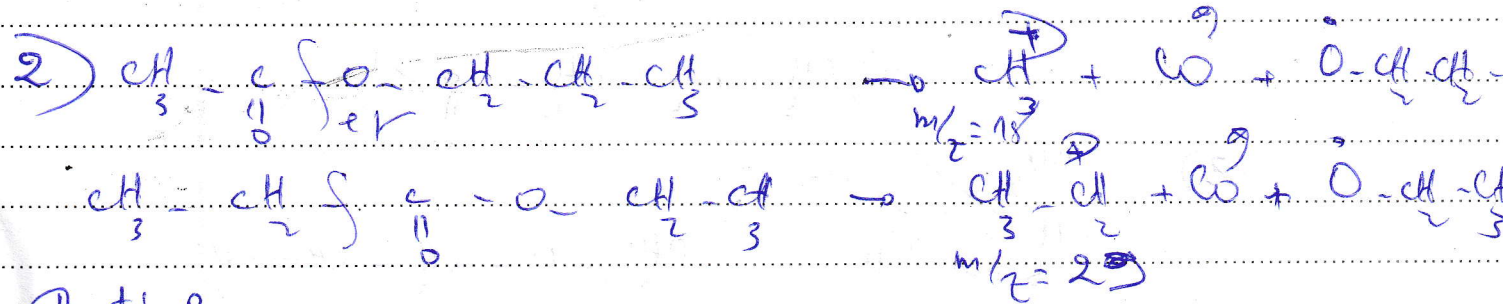 2) CH₃ - C(=O) ∫ O - CH₂ - CH₂ - CH₃ → CH₃⊕ + CO↗ + Ȯ - CH₂ - CH₂ -
er
m/z = 15
CH₃ - CH₂ ∫ C(=O) - O - CH₂ - CH₃ → CH₃ - CH₂⊕ + CO↗ + Ȯ - CH₂ - CH₃
m/z = 29